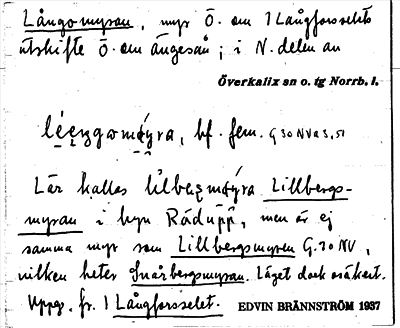 Långomyran, myr Ö. om 1 Långforsselets
utskifte Ö. om ängesån; i N. delen av
Överkalix sn o. tg Norrb. l.
bf. fem. G 30 NV a 3, 51
Lär kallas Lillbergs-
myran i byn Rödupp, men är ej
samma myr som Lillbergsmyren G. 30 NV,
vilken heter Snårbergsmyran. Läget dock osäkert.
Uppg. fr. 1 Långforsselet. EDVIN BRÄNNSTRÖM 1937